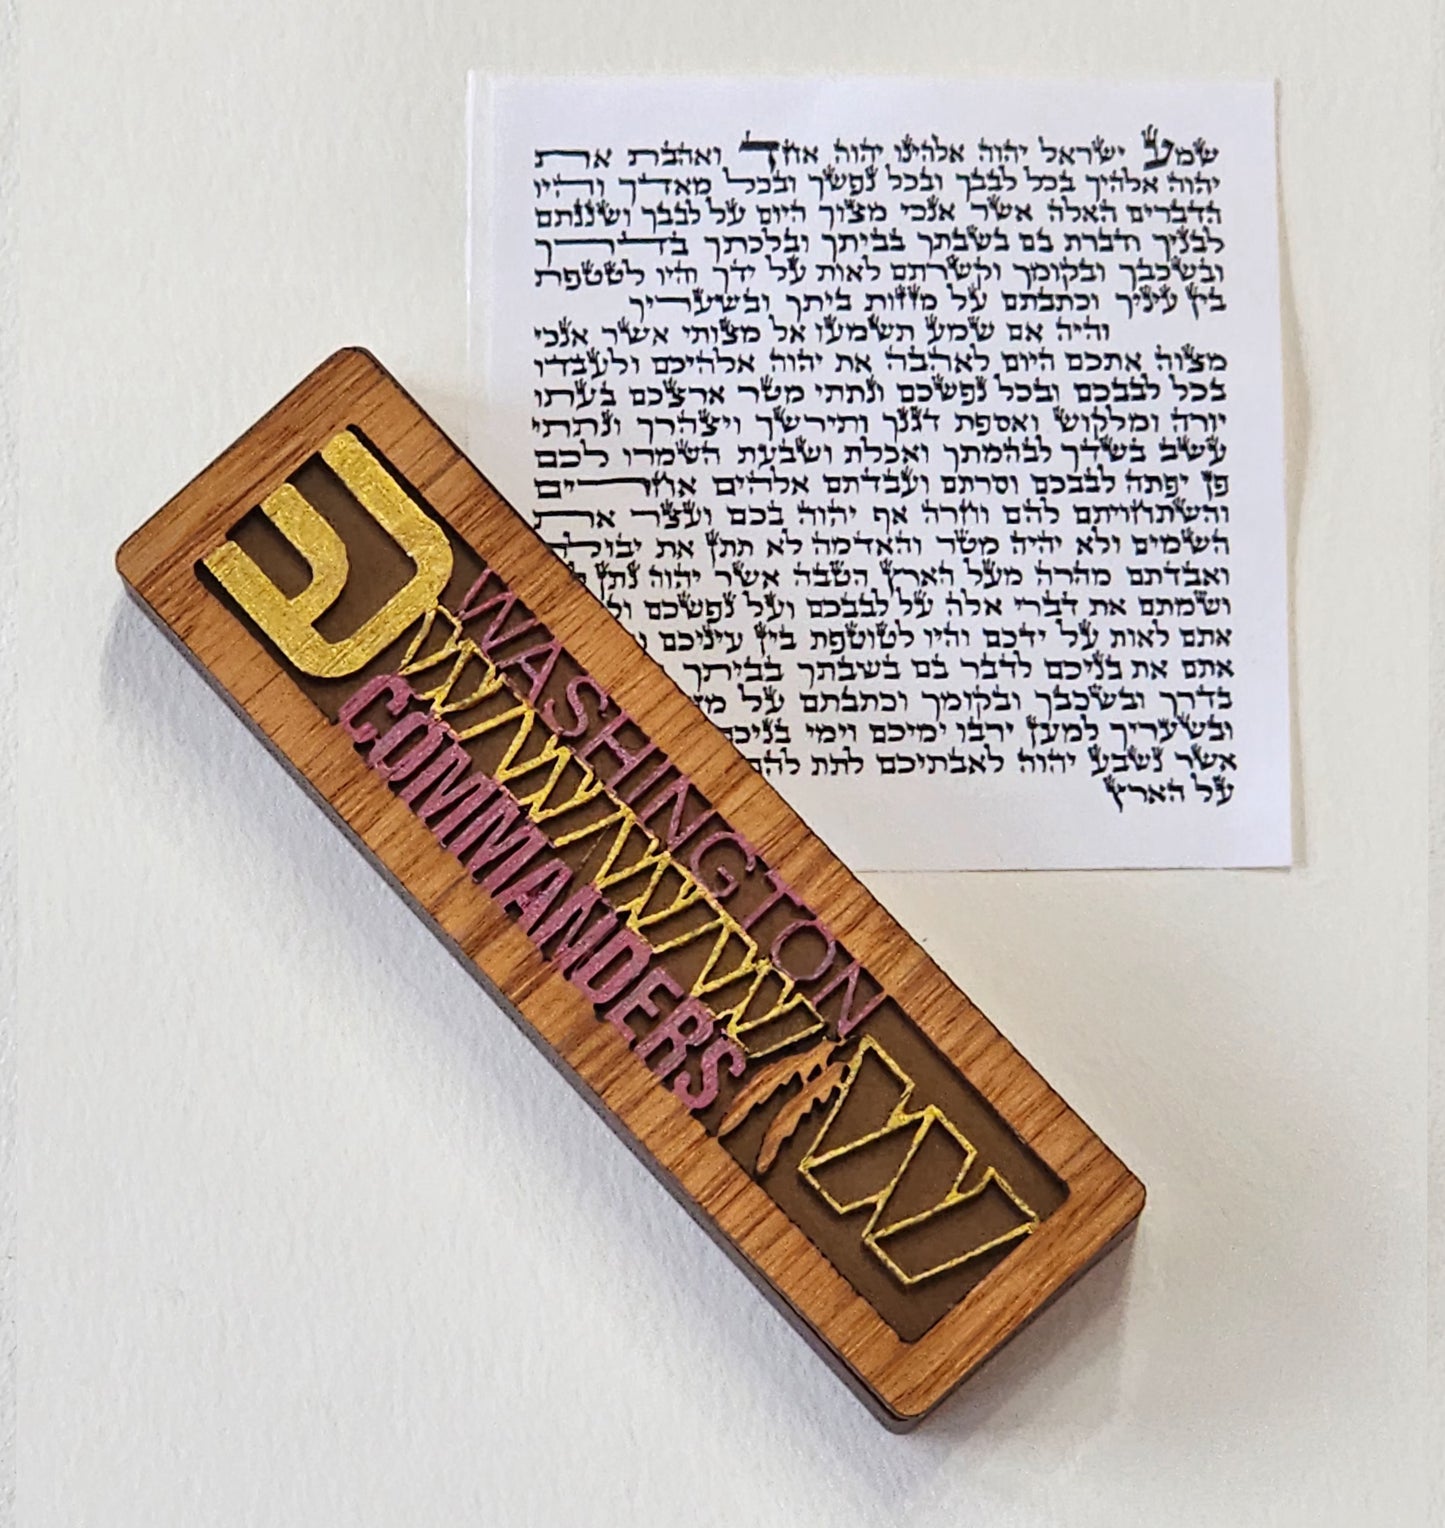 שמע ישראל יהוה אלהינו יהוה אחד ואהבת את
יהוה אלהיך בכל לבבך ובכל נפשך ובכל מאדך והיו
הדברים האלה אשר אנכי מצוך היום על לבבך ושננתם
לבניך ודברת בם בשבתך בביתך ובלכתך בדרך
ובשכבך ובקומך וקשרתם לאות על ידך והיו לטטפת
בין עיניך וכתבתם על מזזות ביתך ובשעריך
והיה אם שמע תשמעו אל מצותי אשר אנכי
מצוה אתכם היום לאהבה את יהוה אלהיכם ולעבדו
בכל לבבכם ובכל נפשכם ונתתי מטר ארצכם בעתו
יורה ומלקוש ואספת דגנך ותירשך ויצהרך ונתתי
עשב בשדך לבהמתך ואכלת ושבעת השמרו לכם
פן יפתה לבבכם וסרתם ועבדתם אלהים אחרים
והשתחויתם להם וחרה אף יהוה בכם ועצר את
השמים ולא יהיה מטר והאדמה לא תתן את יבולה
ואבדתם מהרה מעל הארץ הטבה אשר יהוה נתן
ושמתם את דברי אלה על לבבכם ועל נפשכם
אתם לאות על ידכם והיו לטוטפת בין עיניכם
אתם את בניכם לדבר בם בשבתך בביתך
בדרך ובשכבך ובקומך וכתבתם על
ובשעריך למען ירבו ימיכם וימי בניכם
אשר נשבע יהוה לאבתיכם לתת להם
על הארץ
ש
WASHINGTON
COMMANDERS
W